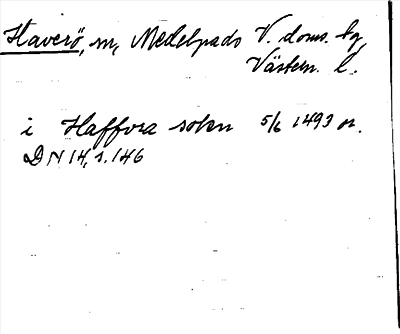 Haverö, sn, Medelpads V. doms. bg,
Västern. l.
i Haffora sokn 5/6 1493 or.
DN 14, s. 146